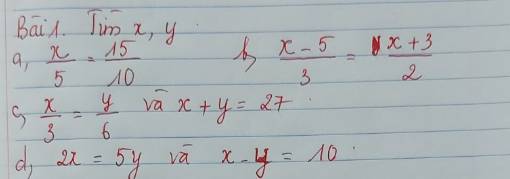 Bài 1. Tìm x, y
a, x/5 = 15/10 b, x - 5/3 = x + 3/2
c, x/3 = y/6 và x + y = 27
d, 2x = 5y và x - y = 10